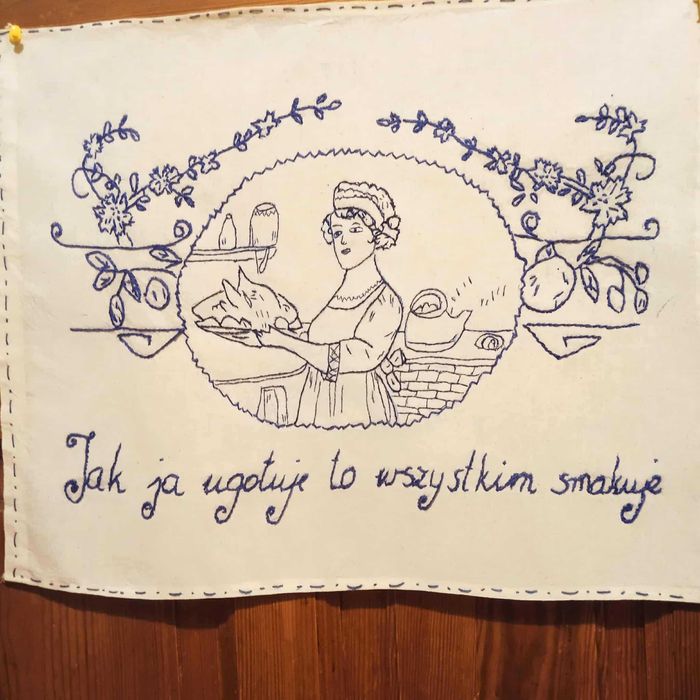 Jak ja ugotuje to wszystkim smakuje